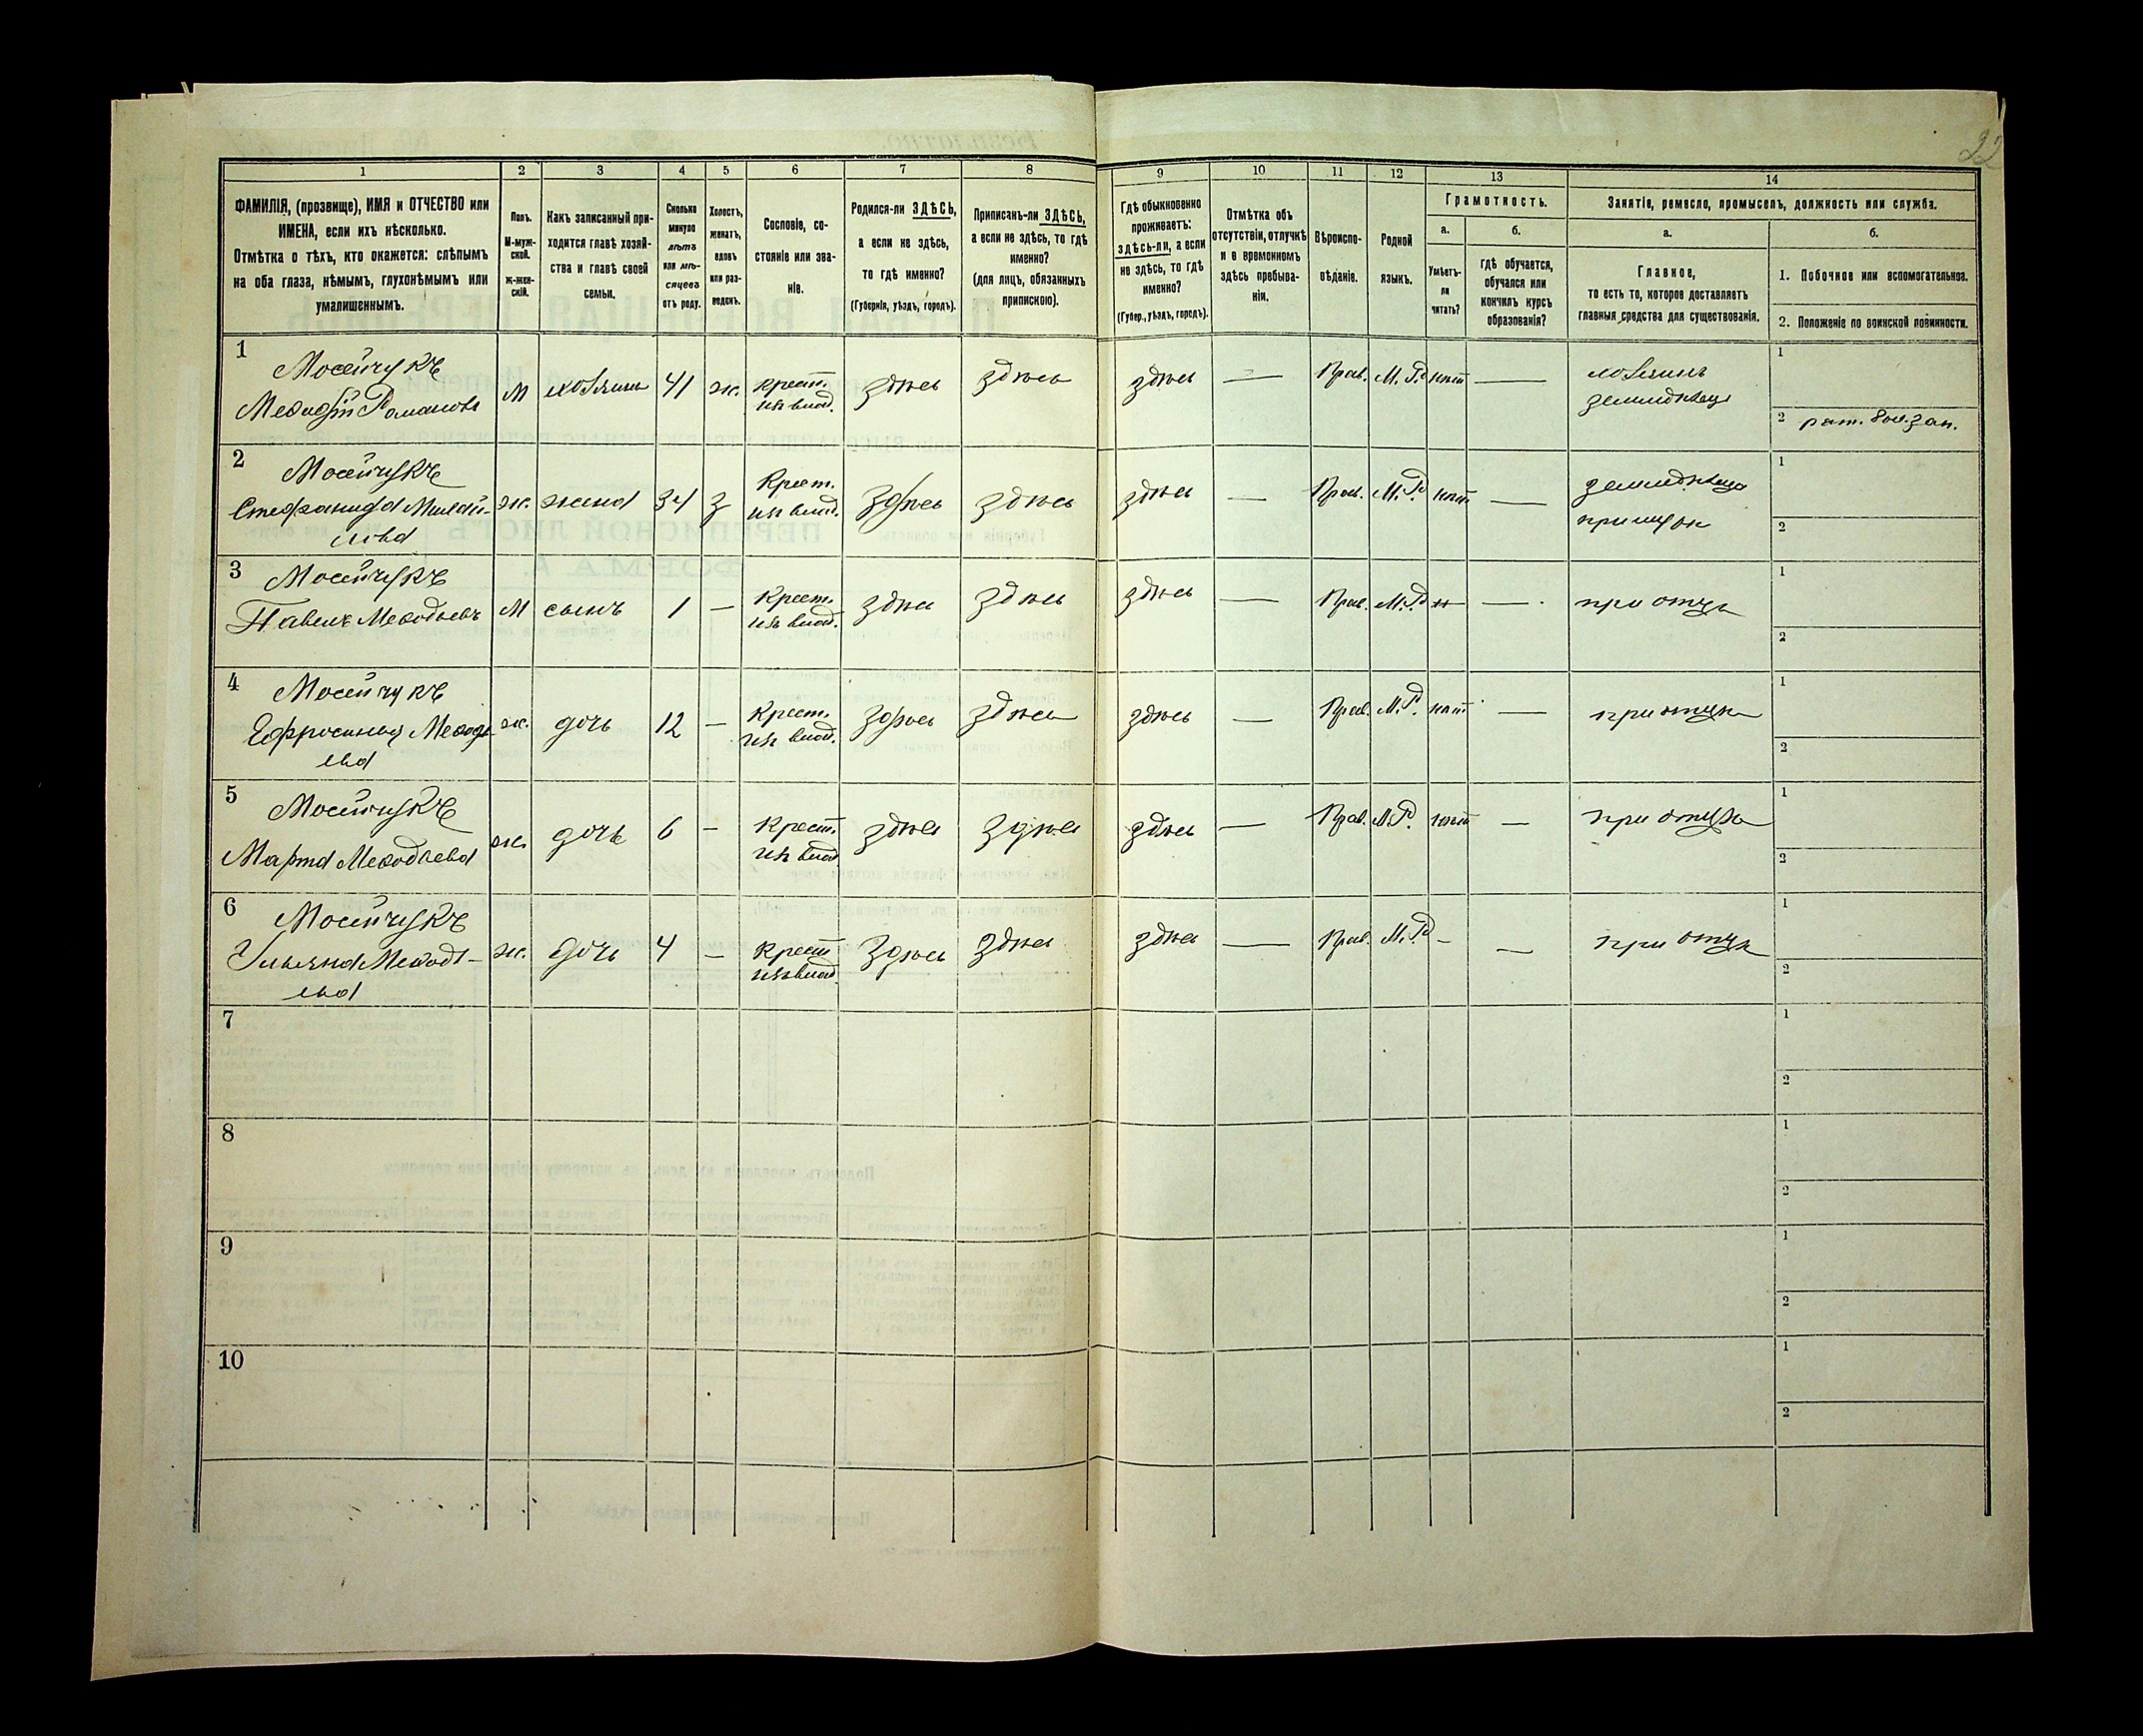 22
1 2 3 4 5 6 7 8 9 10 11 12 13 14
ФАМИЛІЯ, (прозвище), ИМЯ и ОТЧЕСТВО или
ИМЕНА, если ихъ нѣсколько.
Отмѣтка о тѣхъ, кто окажется: слѣпымъ
на оба глаза, нѣмымъ, глухонѣмымъ или
умалишеннымъ.
Полъ.
М-муж-
ской.
ж-жен-
скій.
Какъ записанный при-
ходится главѣ хозяй-
ства и главѣ своей
семьи.
Сколько
минуло
лѣтъ
или мѣ-
сяцевъ
отъ роду.
Холостъ,
женатъ,
вдовъ
или раз-
веденъ.
Сословіе, со-
стояніе или зва-
ніе.
Родился-ли ЗДѢСЬ,
а если не здѣсь,
то гдѣ именно?
(Губернія, уѣздъ, городъ).
Приписанъ-ли ЗДѢСЬ,
а если не здѣсь, то гдѣ
именно?
(для лицъ, обязанныхъ
припискою).
Гдѣ обыкновенно
проживаетъ:
здѣсь-ли, а если
не здѣсь, то гдѣ
именно?
(Губер., уѣздъ, городъ).
Отмѣтка объ
отсутствіи, отлучкѣ
и о временномъ
здѣсь пребыва-
ніи.
Вѣроиспо-
вѣданіе.
Родной
языкъ.
Грамотность.
а.
Умѣетъ-
ли
читать?
б.
гдѣ обучается,
обучался или
кончилъ курсъ
образованія?
Занятіе, ремесло, промыселъ, должность или служба.
а.
Главное,
то есть то, которое доставляетъ
главныя средства для существованія.
б.
1. Побочное или вспомогательное.
2. Положеніе по воинской повинности.
1
Мосейчукъ
Мефодій Романовъ
М хозяинъ 41 ж. крест. изъ влад. здѣсь здѣсь здѣсь — Прав. М. Р. нѣт — хозяинъ
земледѣлецъ
1
2
2
Мосейчукъ
Стефанида Михай-
лова
ж. жена 34 з Крест. изъ влад. Здѣсь здѣсь здѣсь — Прав. М. Р. нѣт — земледѣлецъ
при мужѣ
1
2
3
Мосейчукъ
Павелъ Мефодьевъ
М сынъ 1 — Крест. изъ влад. здѣсь здѣсь здѣсь — Прав. М. Р. — — при отцѣ
1
2
4
Мосейчукъ
Ефросинья Мефодь
ева
ж. дочь 12 — Крест. изъ влад. Здѣсь здѣсь здѣсь — Прав. М. Р. нѣт — при отцѣ
1
2
5
Мосейчукъ
Марта Мефодьева
ж. дочь 6 — Крест. изъ влад. здѣсь Здѣсь здѣсь — Прав. М. Р. нѣт — при отцѣ
1
2
6
Мосейчукъ
Ульяна Мефодь-
ева
ж. дочь 4 — Крест изъ влад. Здѣсь здѣсь здѣсь — Прав. М. Р. — — при отцѣ
1
2
7
1
2
8
1
2
9
1
2
10
1
2